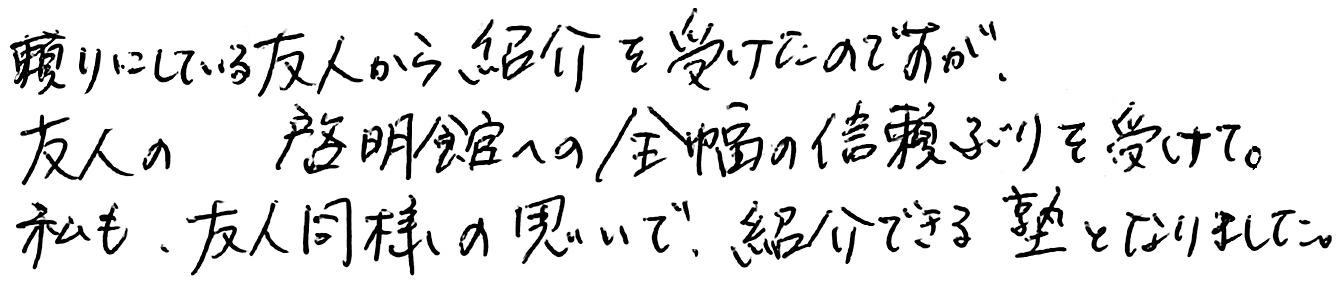 頼りにしている友人から紹介を受けたのですが、
友人の 啓明館への全幅の信頼ぶりを受けて。
私も、友人同様の思いで、紹介できる塾となりました。